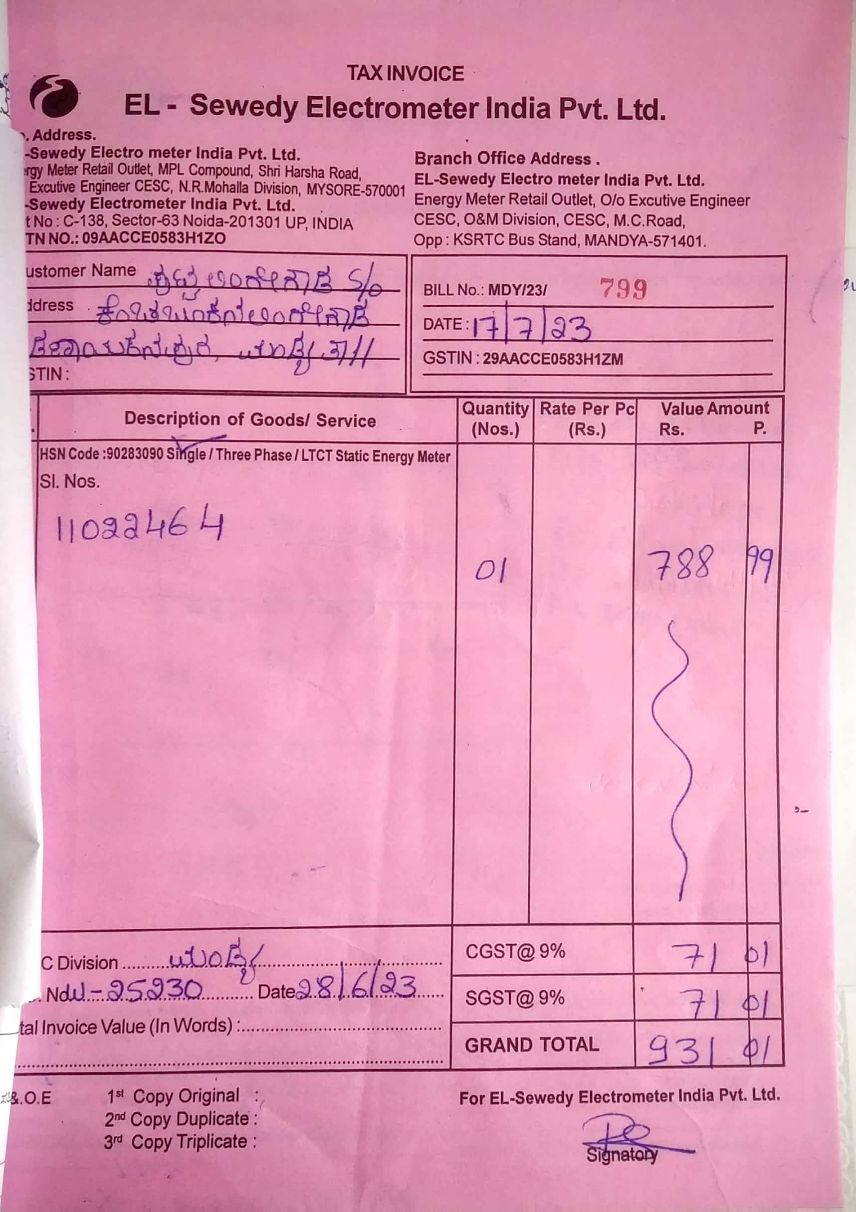 TAX INVOICE
EL - Sewedy Electrometer India Pvt. Ltd.
. Address.
-Sewedy Electro meter India Pvt. Ltd.
rgy Meter Retail Outlet, MPL Compound, Shri Harsha Road,
Excutive Engineer CESC, N.R.Mohalla Division, MYSORE-570001
-Sewedy Electrometer India Pvt. Ltd.
t No : C-138, Sector-63 Noida-201301 UP, INDIA
TN NO.: 09AACCE0583H1ZO
Branch Office Address .
EL-Sewedy Electro meter India Pvt. Ltd.
Energy Meter Retail Outlet, O/o Excutive Engineer
CESC, O&M Division, CESC, M.C.Road,
Opp : KSRTC Bus Stand, MANDYA-571401.
ustomer Name S/o
ddress
STIN :
BILL No.: MDY/23/ 799
DATE : 17/7/23
GSTIN : 29AACCE0583H1ZM
Description of Goods/ Service Quantity (Nos.) Rate Per Pc (Rs.) Value Amount Rs. P.
HSN Code :90283090 Single / Three Phase / LTCT Static Energy Meter
Sl. Nos.
11022464
01 788 99
C Division ಮಂಡ್ಯ
CGST@ 9% 71 01
. No W-25230 Date 28/6/23
SGST@ 9% 71 01
tal Invoice Value (In Words) :
GRAND TOTAL 931 01
&.O.E
1st Copy Original :
2nd Copy Duplicate :
3rd Copy Triplicate :
For EL-Sewedy Electrometer India Pvt. Ltd.
Signatory